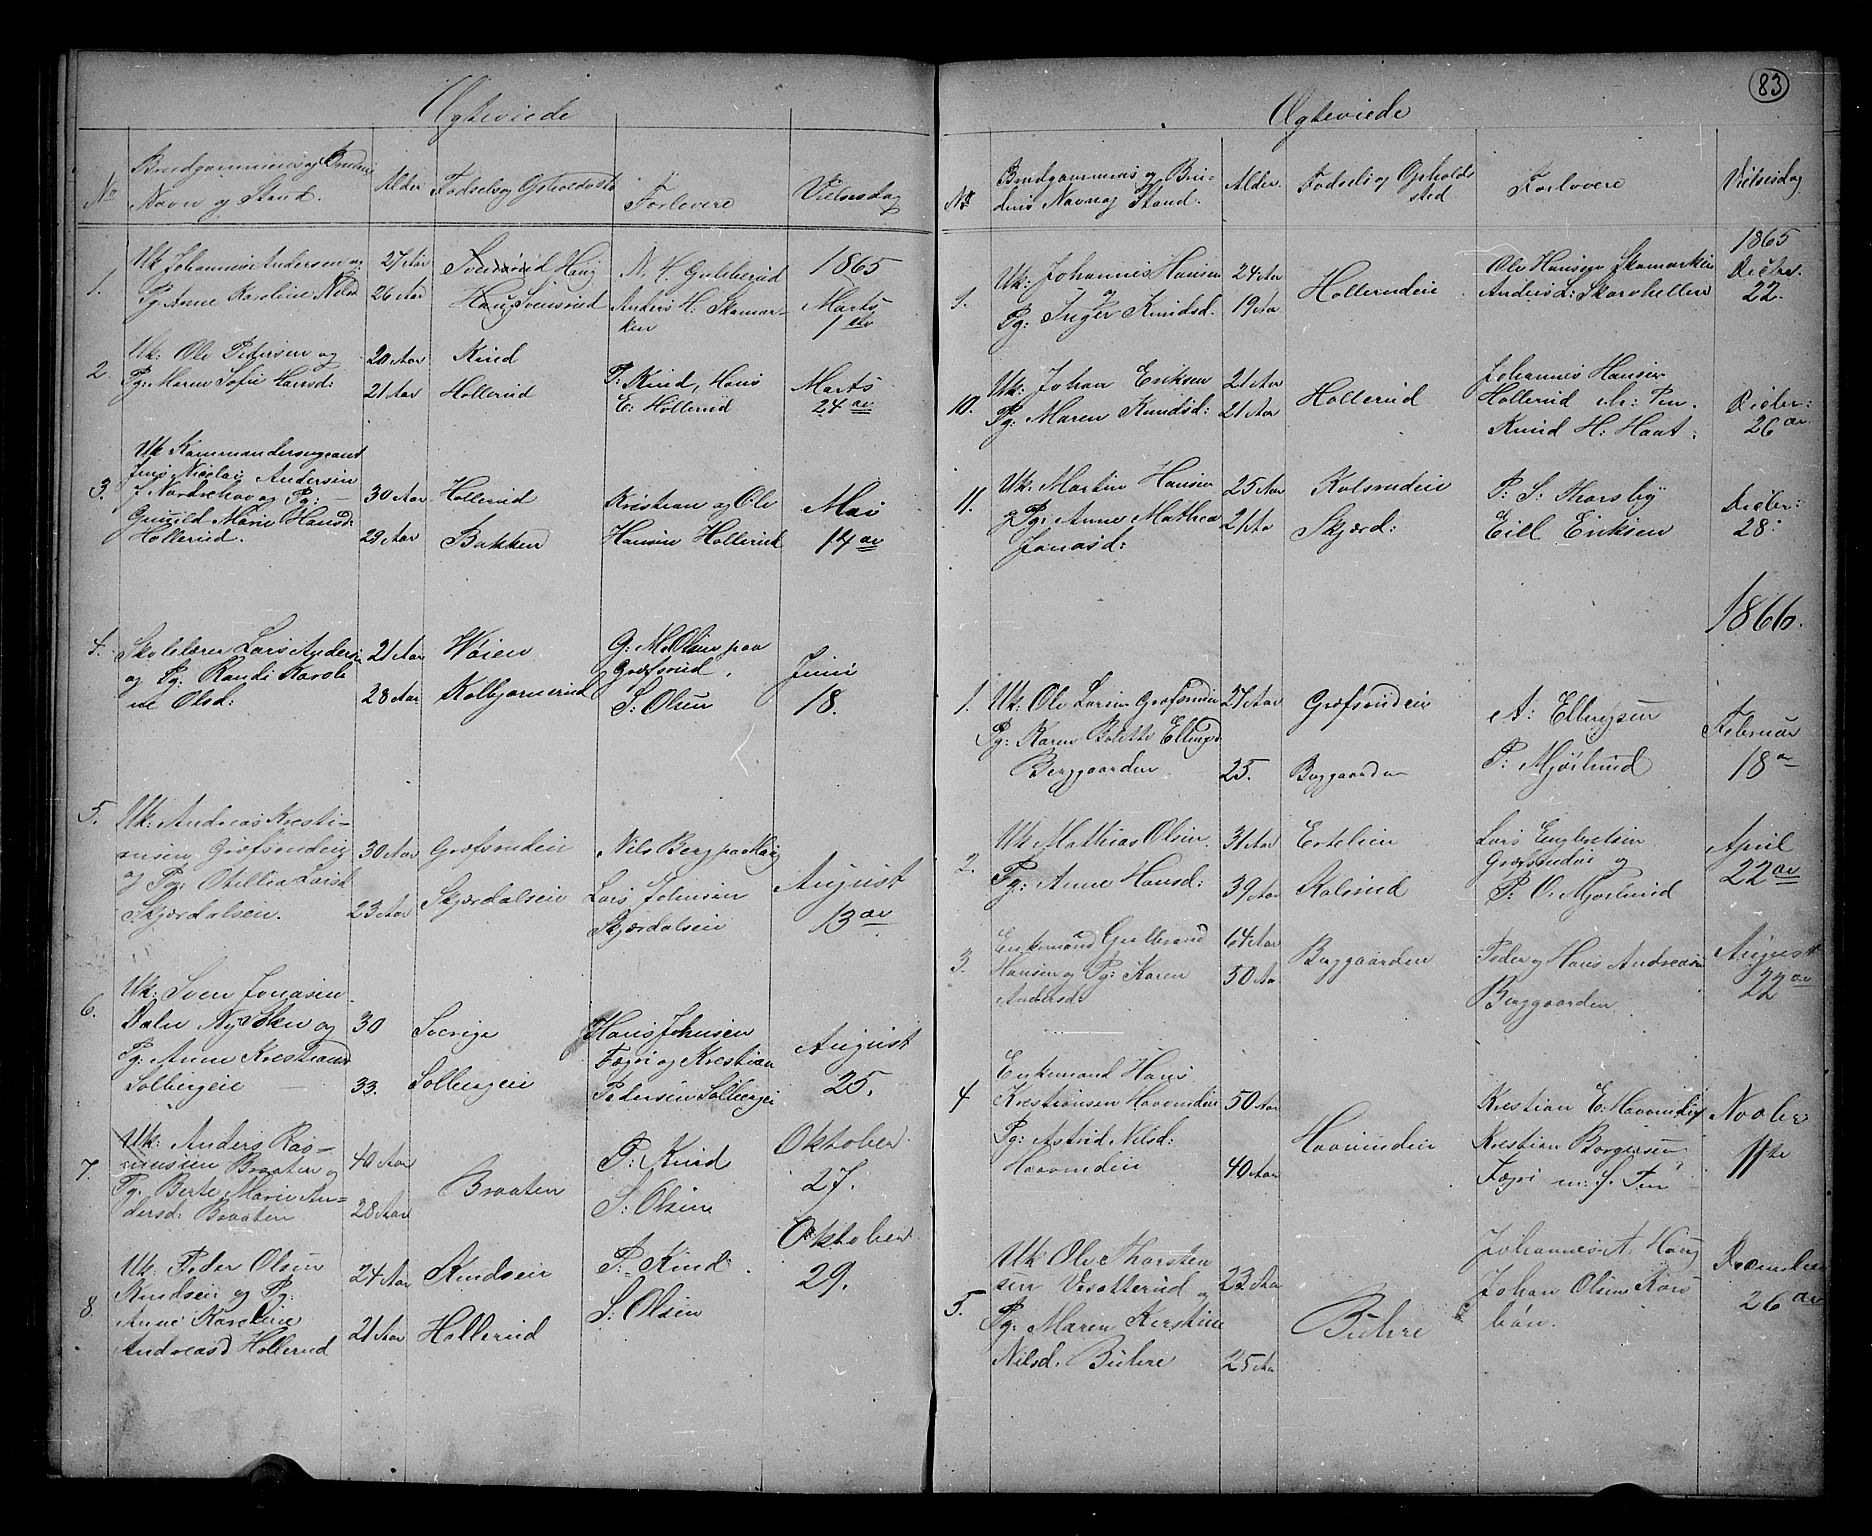 Ægteviede
No
Brudgommens og Brudens
Navn og Stand.
Alder
Fødsels og Opholdsste
Forlovere
Vielsesdag
1.
Uk Johannes Andersen og
Pg. Anne Karoline Nilsd
27 Aar
26 Aar
Svensrud Haug
Haug Svensrud
N. H. Gulberud
Anders H. Skamar-
ken
1865
Marts
1
2.
Uk: Ole Pedersen og
Pg: Maren Sofie Hansd:
20 Aar
21 Aar
Kind
Hollerud
P: Kind, Hans
E: Hollerud
Marts
24
3.
Uk Kommandersergeant
Jens Nicolai Andersen
f Nordrehov og Pg:
Gunild Marie Hansd:
Hollerud.
30 Aar
29 Aar
Hollerud
Bakken
Kristian og Ole
Hansen Hollerud
Mai
14
4.
Skolelærer Lars Andersen
og Pg: Randi Karoli
ne Olsd:
21 Aar
28 Aar
Wøien
Kolbjørnerud
G: M. Olsen paa
Græfsrud.
S: Olsen
Juni
18.
5.
Uk: Andreas Kristi-
ansen Græfsrudeie
og Pg: Otillia Larsd
Skjærdalseie.
30 Aar
23 Aar
Græfsrudeie
Skjærdalseie
Nils Berg paa Haug
Lars Johnsen
Skjærdalseie
August
13
6.
Uk: Sven Jonasen
Dæln og
Pg: Anne Kristians
Solbergeie
30
33.
Sverige
Solbergeie
Hans Johnsen
Fægri og Kristian
Pedersen Solbergei
August
25.
7.
Uk: Anders Ras-
mussen Braaten og
Pg: Berte Marie An-
dersd: Braaten
40 Aar
28 Aar
Braaten
P: Kind
S: Olsen
Oktober
27.
8
Uk: Peder Olsen
Kindseie og Pg:
Anne Karoline
Andreasd Hollerud
24 Aar
21 Aar
Kindseie
Hollerud
P: Kind
S: Olsen
Oktober
29.
83
Ægteviede
No
Brudgommens og Bru-
dens Navn og Stand.
Alder.
Fødsels og Opholds
sted
Forlovere
Vielsesdag
9.
Uk: Johannes Hansen
og
Pg: Inger Knudsd.
24 Aar
19 Aar
Hollerudeie
Ole Hansen Skamarken
Anders L: Skarohellen
1865
Decbr.
22.
10.
Uk: Johan Eriksen
Pg: Maren Knudsd:
21 Aar
21 Aar
Hollerud
Johannes Hansen
Hollerud m: Pen.
Knud H: Haat.
Decbr:
26
11.
Uk: Martin Hansen
og Pg: Anne Mathea
Jonasd:
25 Aar
21 Aar
Kolsrudeie
Skjærd:
P: S: Thorsby
Eill Eriksen
Decbr:
28:
1866.
1.
Uk: Ole Larsen Græfsrudeie
Pg: Karen Bolette Ellingsd
Berggaarden
27 Aar
25.
Græfsrudeie
Berggaarden
A: Ellingsen
P: Mjørlund
Februar
18
2.
Uk Mathias Olsen
Pg: Anne Hansd:
31 Aar
39 Aar
Eidseie
Kolsrud
Lars Engbretsen
Græfsrudeie og
P. O. Mjørlund
April
22
3.
Enkemand Gulbrand
Hansen og Pg: Karen
Andersd:
64 Aar
50 Aar
Berggaarden
Peder og Hans Andreasen
Berggaarden
August
22
4
Enkemand Hans
Kristiansen Haavindeie
Pg: Astrid Nilsd:
Haavindeie
50 Aar
40 Aar
Haavindeie
Kristian E. Haavindeie
Kristian Borgersen
Fægri m: f. Pen
Novbr
11te
5.
Uk Ole Thorsten
sen Vesatterud og
Pg: Maren Kirstine
Nilsd. Buhre
22 Aar
25 Aar
Buhre
Johannes A. Haug
Johan Olsen Kors
bøn.
December
26